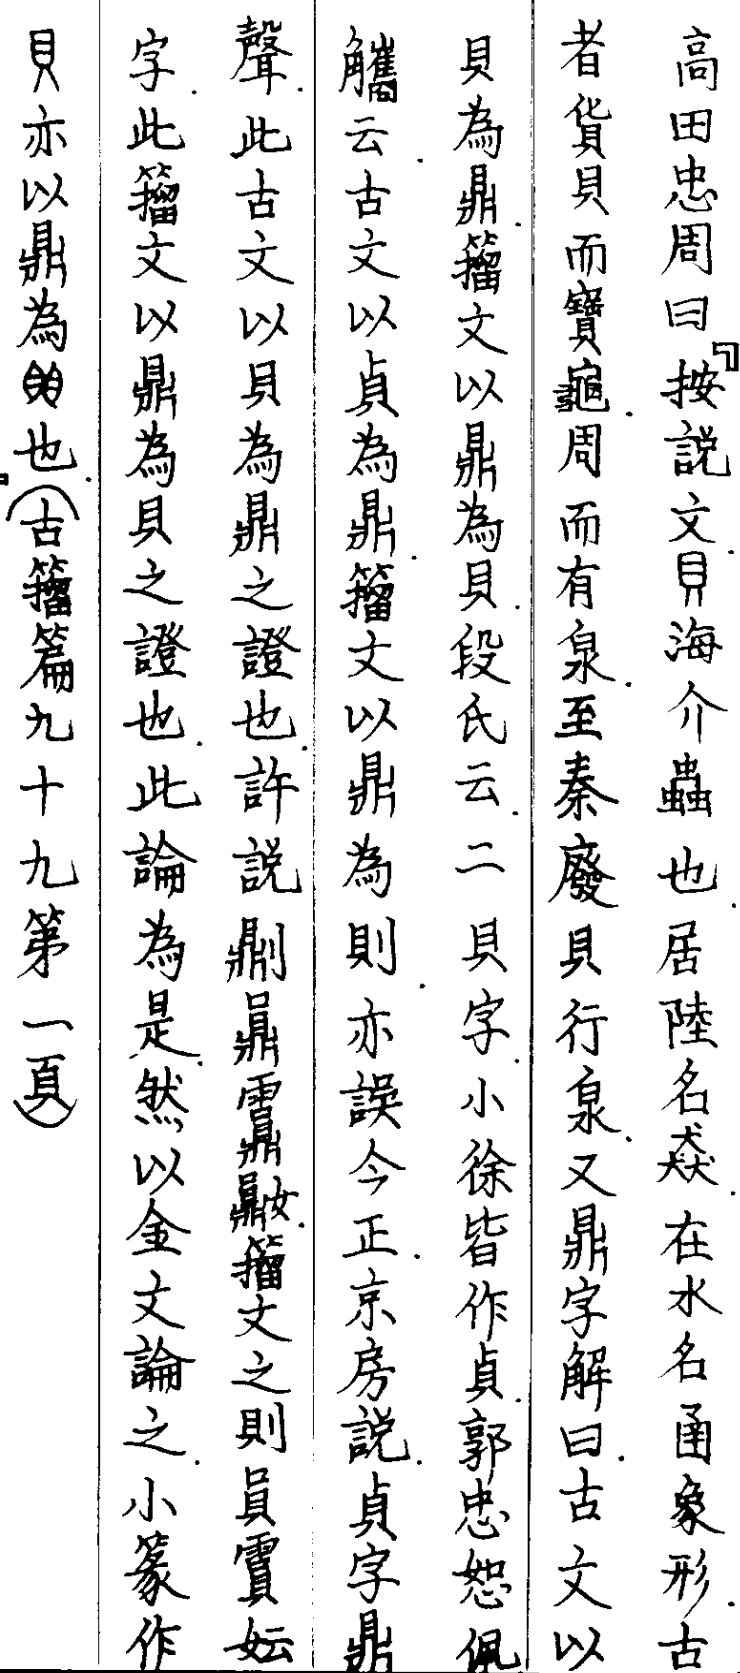 高田忠周曰『按説文.貝海介蟲也.居陸名猋.在水名圅象形.古
者貨貝而寶龜.周而有泉.至秦廢貝行泉.又鼎字解曰.古文以
貝為鼎.籀文以鼎為貝.段氏云.二貝字.小徐皆作貞.郭忠恕佩
觿云.古文以貞為鼎.籀文以鼎為則.亦誤今正.京房説.貞字鼎
聲.此古文以貝為鼎之證也.許説鼎刂鼏䨋.籀文之則員霣妘
字.此籀文以鼎為貝之證也.此論為是.然以金文論之.小篆作
貝亦以鼎為也.』(古籀篇九十九第一頁)